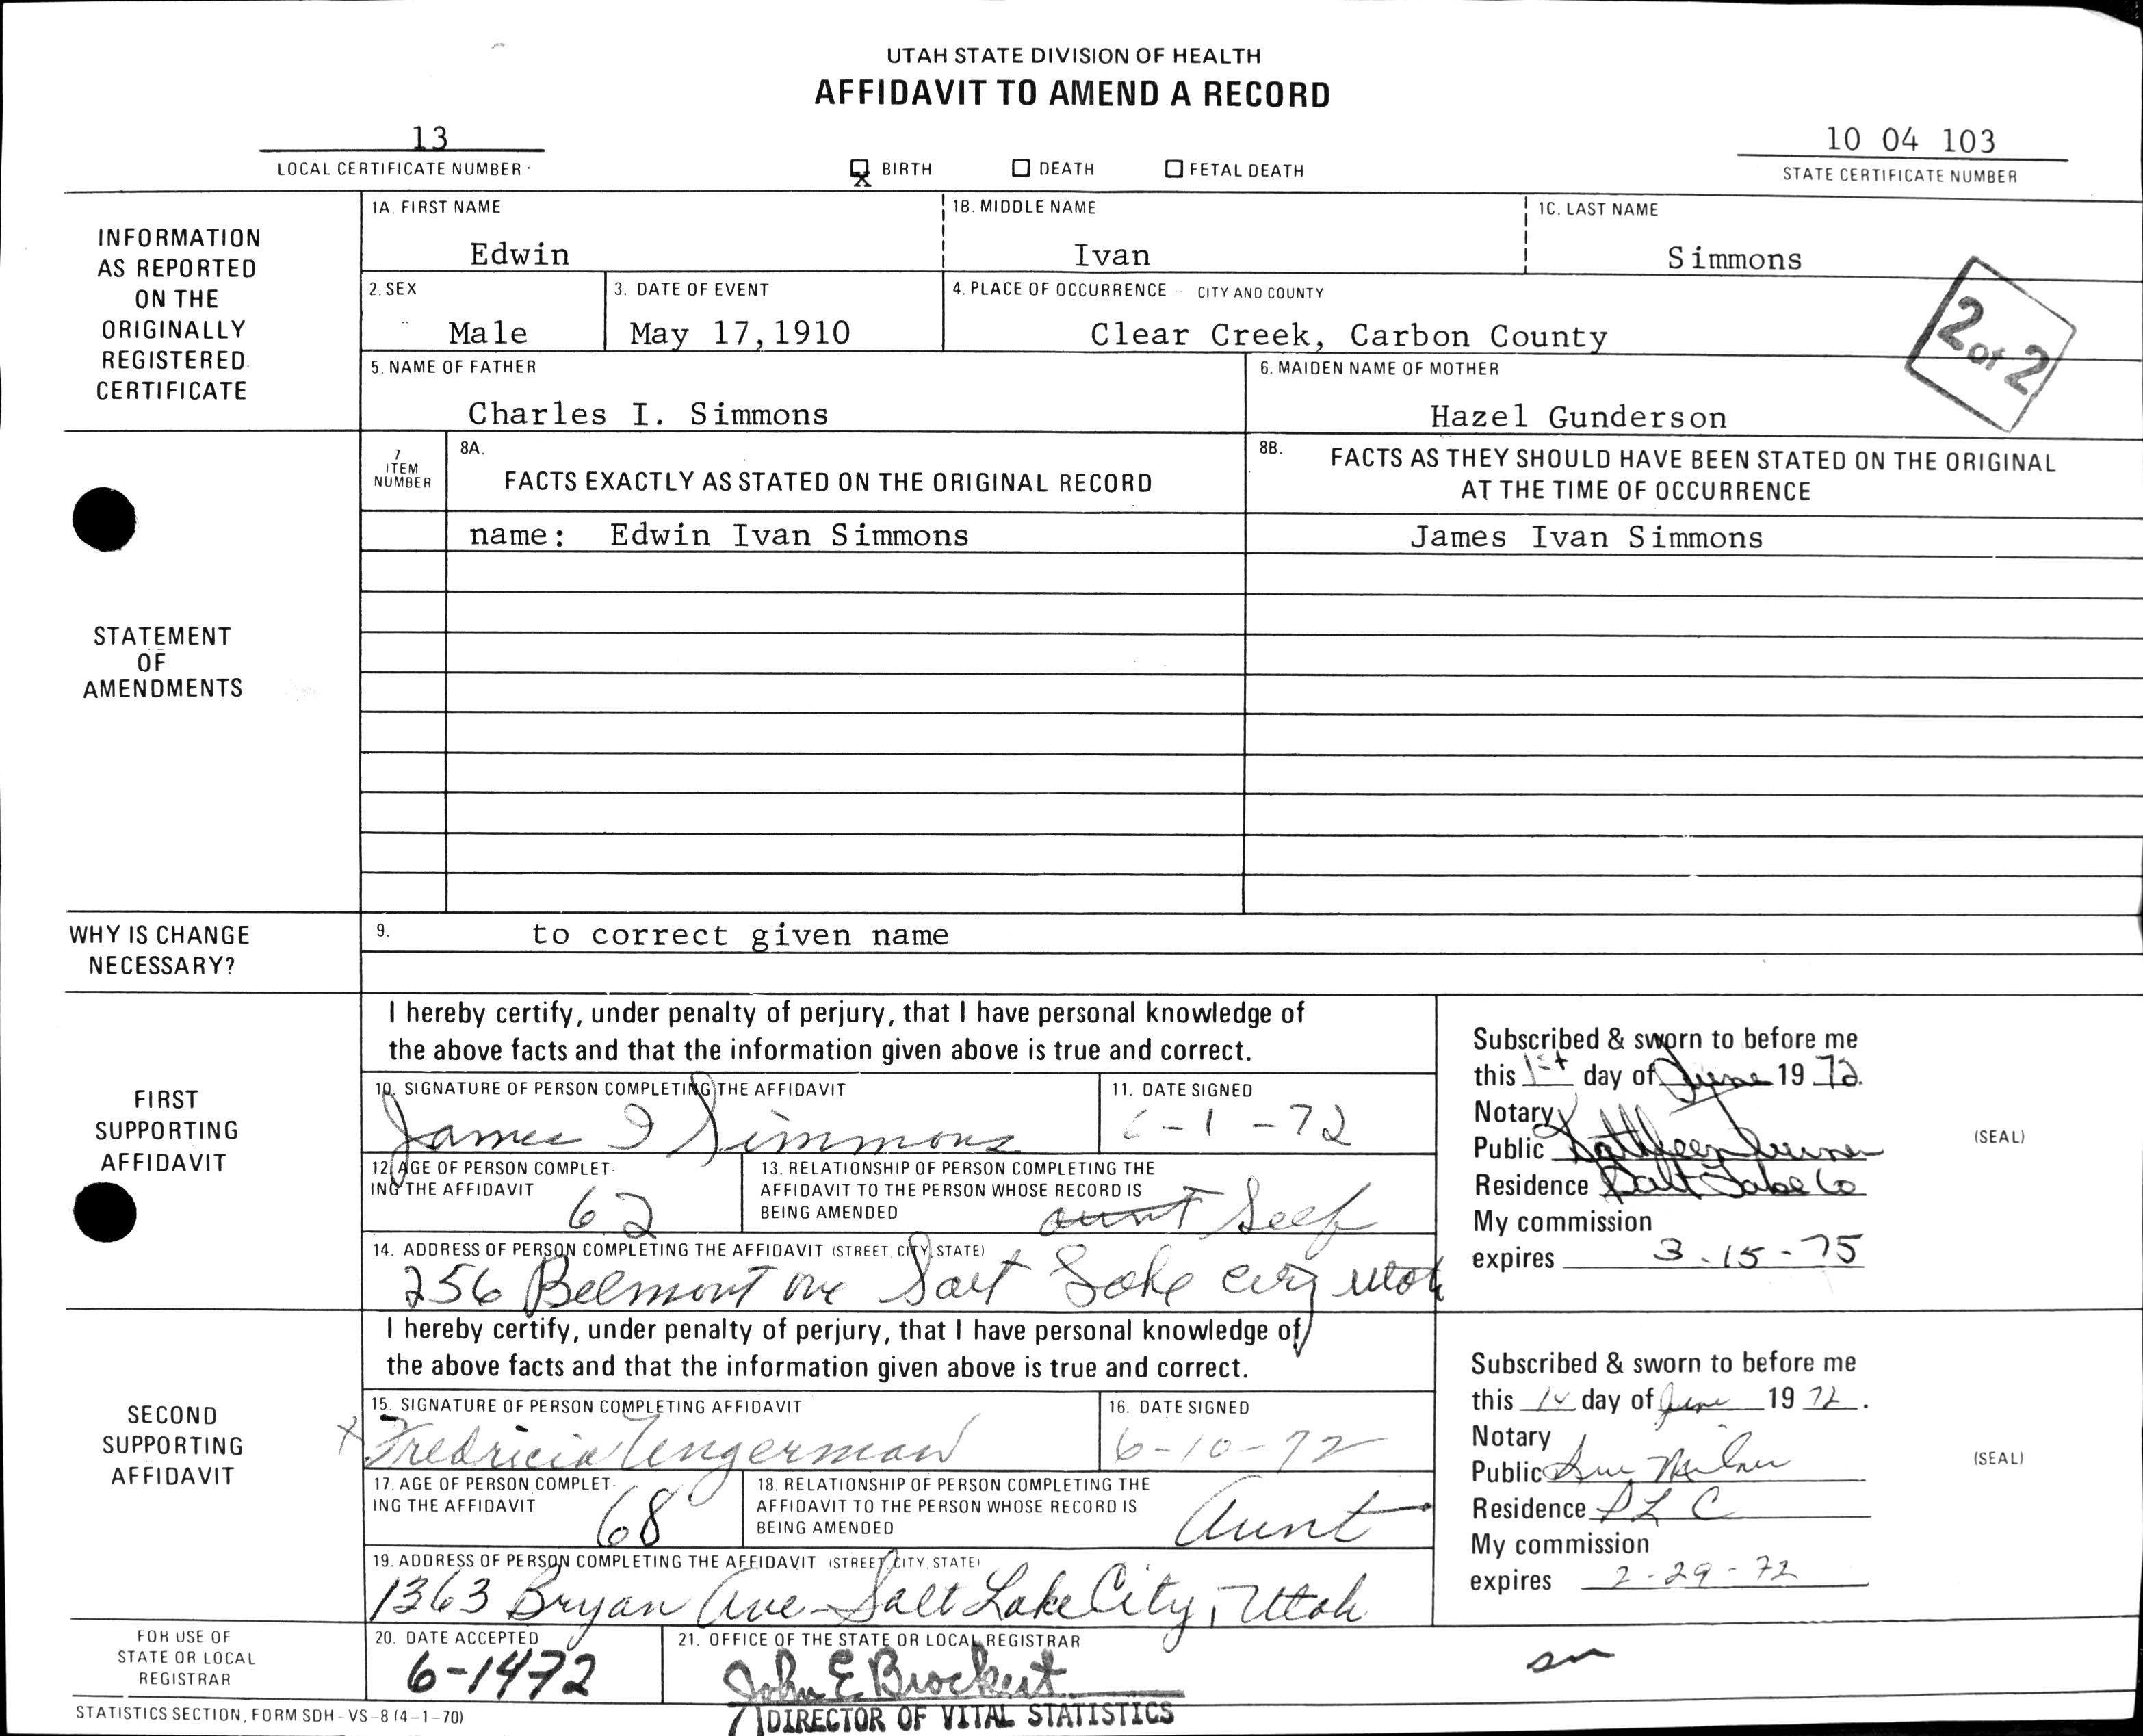 UTAH STATE DIVISION OF HEALTH
AFFIDAVIT TO AMEND A RECORD
13
LOCAL CERTIFICATE NUMBER
X BIRTH
DEATH
FETAL DEATH
10 04 103
STATE CERTIFICATE NUMBER
INFORMATION
AS REPORTED
ON THE
ORIGINALLY
REGISTERED
CERTIFICATE
1A. FIRST NAME
Edwin
1B. MIDDLE NAME
Ivan
1C. LAST NAME
Simmons
2. SEX
Male
3. DATE OF EVENT
May 17,1910
4. PLACE OF OCCURRENCE CITY AND COUNTY
Clear Creek, Carbon County
2 of 2
5. NAME OF FATHER
Charles I. Simmons
6. MAIDEN NAME OF MOTHER
Hazel Gunderson
STATEMENT
OF
AMENDMENTS
7
ITEM
NUMBER
8A.
FACTS EXACTLY AS STATED ON THE ORIGINAL RECORD
8B.
FACTS AS THEY SHOULD HAVE BEEN STATED ON THE ORIGINAL
AT THE TIME OF OCCURRENCE
name: Edwin Ivan Simmons
James Ivan Simmons
WHY IS CHANGE
NECESSARY?
9. to correct given name
FIRST
SUPPORTING
AFFIDAVIT
I hereby certify, under penalty of perjury, that I have personal knowledge of
the above facts and that the information given above is true and correct.
10. SIGNATURE OF PERSON COMPLETING THE AFFIDAVIT
James I Simmons
11. DATE SIGNED
6-1-72
12. AGE OF PERSON COMPLET-
ING THE AFFIDAVIT
62
13. RELATIONSHIP OF PERSON COMPLETING THE
AFFIDAVIT TO THE PERSON WHOSE RECORD IS
BEING AMENDED
aunt Self
14. ADDRESS OF PERSON COMPLETING THE AFFIDAVIT (STREET, CITY, STATE)
256 Belmont ave Salt Lake City Utah
Subscribed & sworn to before me
this 1st day of June 19 72.
Notary
Public Kathleen
Residence Salt Lake Co
My commission
expires 3-15-75
(SEAL)
SECOND
SUPPORTING
AFFIDAVIT
I hereby certify, under penalty of perjury, that I have personal knowledge of
the above facts and that the information given above is true and correct.
15. SIGNATURE OF PERSON COMPLETING AFFIDAVIT
X Fredricia Ungerman
16. DATE SIGNED
6-10-72
17. AGE OF PERSON COMPLET-
ING THE AFFIDAVIT
68
18. RELATIONSHIP OF PERSON COMPLETING THE
AFFIDAVIT TO THE PERSON WHOSE RECORD IS
BEING AMENDED
Aunt
19. ADDRESS OF PERSON COMPLETING THE AFFIDAVIT (STREET, CITY, STATE)
1363 Bryan Ave - Salt Lake City, Utah
Subscribed & sworn to before me
this 14 day of June 19 72.
Notary
Public Sue Milner
Residence SLC
My commission
expires 2-29-72
(SEAL)
FOR USE OF
STATE OR LOCAL
REGISTRAR
20. DATE ACCEPTED
6-1472
21. OFFICE OF THE STATE OR LOCAL REGISTRAR
John E Brockert
DIRECTOR OF VITAL STATISTICS
sm
STATISTICS SECTION, FORM SDH-VS-8 (4-1-70)